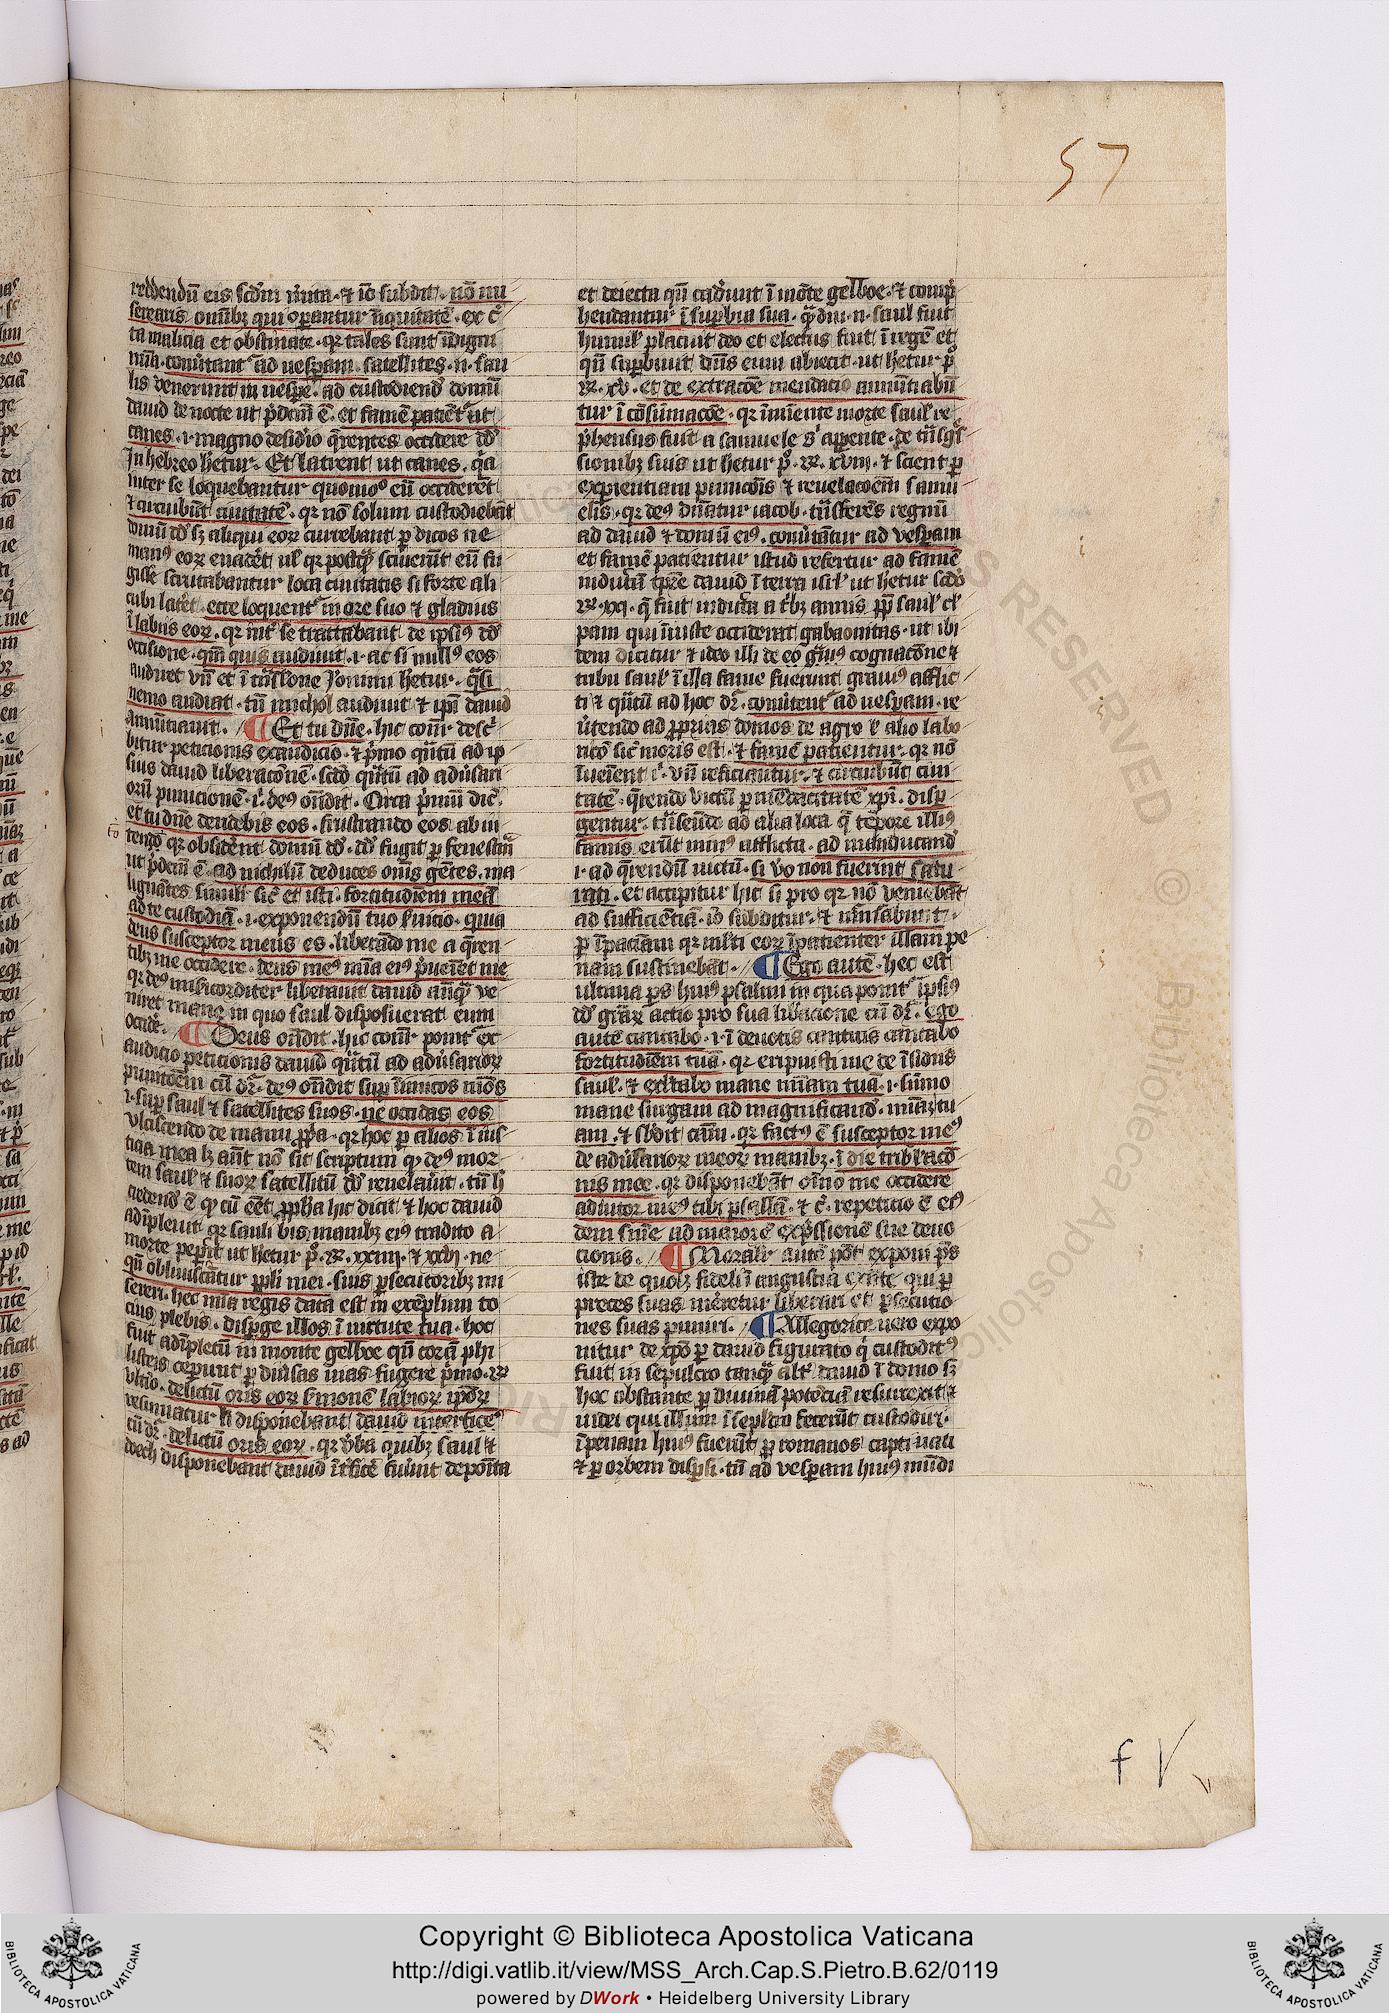 57
reddendū eis scdm mita · ⁊ iō subdit · nō mi
serearis omībꝫ qui opantur īiquitatē · ex c̄
ta malicia et obstinate · qꝛ tales sunt īdigni
mīa · conūtant᷑ ad uesperam · satellites · n · sau
lis uenerunt in uespe · ad custodiend domū
dauid de nocte ut pdcm̄ ē · et famē patient᷑ ut
canes · i · magno desidio q̄rentes occidere dd̄
In hebreo hetur · Et latrent ut canes · q̄a
inter se loquebantur quomoº eū occiderēt
⁊ circuibūt ciuitatē · qꝛ nō solum custodiebāt
domū dd̄ sꝫ aliqui eoꝝ currebant p uicos ne
manꝰ eoꝝ euadet ul̓ qꝛ postq̄ sciuerūt eū fu
gisse scrutabantur loca ciuitatis si forte ali
cubi latet · ecce loquent᷑ in ore suo ⁊ gladius
ī labiis eoꝝ · qꝛ int᷑ se tractabant de ipsiꝰ dd̄
occisione · qm̄ quis audiuit · i · ac si nullꝰ eos
audiret vn̄ et ī trāslone Ieronimi hetur · q̄si
nemo audiat · tn̄ michol audiuit ⁊ ipi dauid
annūtiauit · ¶ Et tu dn̄e · hic conr̄ desc̄
bitur peticionis exaudicio · ⁊ pmo q̄ntū ad ip
sius dauid liberacōnē · scdo q̄ntū ad aduersari
orū punicionē · i · deꝰ ondit · Circa pmū dic̄ ·
et tu dn̄e deridebis eos · frustrando eos ab in
tento qꝛ obsident domū dd̄ · dd̄ fugit p fenestrā
ut pdcm̄ ē · ad nichilū deduces omīs gētes · ma
lignātes simul sic̄ et isti · fortitudinem meā
ad te custodiā · i · exponendū tuo seruicio · quia
deus susceptor meus es · liberādo me a q̄ren
tibꝫ me occidere · deus meꝰ mīa eiꝰ pueniet me
qꝛ deꝰ misicorditer liberauit dauid anteq̄ ve
niret mane in quo saul disposuerat eum
occide · ¶ Deus ondit · hic conr̄ ponit᷑ ex
audicio peticionis dauid q̄ntū ad aduersarioꝝ
punicōem cū dr̄ · deꝰ ondit sup inimicos meos
i · sup saul ⁊ satellites suos · ne occidas eos
vlciscendo de manu ppia · qꝛ hoc p alios ī ius
ticia mea lꝫ aut̄ nō sit scriptum qꝫ deꝰ mor
tem saul ⁊ suoꝝ satellitū dd̄ reuelauit · tn̄ hͦ
credend ē qꝫ cū eēt ppha hic dicit ⁊ hoc dauid
adimpleuit qꝛ sauli bis manibꝫ eiꝰ tradito a
morte pepcit ut hetur pº · ꝶ · xxiiii · ⁊ xxvi · ne
qn̄ obliuiscātur ppli mei · suis psecutoribꝫ mi
sereri · hec mīa regis data est in exemplum to
cius plebis · dispge illos ī uirtute tua · hoc
fuit adimpletū in monte gelboe qn̄ corā phi
listeis ceperunt p diuersas uias fugere pmo · ꝶ
vltīo · delictū oris eoꝝ sermonē labioꝝ ipoꝝ
cū dr̄ · delictū oris eoꝝ · qꝛ uba quibꝫ saul ⁊
doech disponebant dauid īterficē fuerunt deposita
et deiecta qn̄ cadiunt ī mōte gelboe · ⁊ compe
hendantur ī supbia sua · q̄diu · n · saul fuit
humil̓ placuit deo et electus fuit ī regē et
qn̄ supbiuit dn̄s eum abiecit · ut hetur pº
ꝶ · xv · et de extracōe mendacio annūtiabū
tur ī cōsumacōe · qꝛ īminente morte saul̓ re
phensus fuit a samuele s᷑ apparente · de trāsgr̄
sionibꝫ suis ut hetur pº · ꝶ · xxviii · ⁊ scient p
experientiam punicōis ⁊ reuelacōem samu
elis · qꝛ deꝰ dn̄atur iacob · trāsferēs regnū
ad dauid ⁊ domū eiꝰ · conūtātur ad vesperam
et famē patientur istud refertur ad famē
inductā tpre dauid ī terra isrl̓ ut hetur scdo
ꝶ · xxi · q̄ fuit inducta a tribꝫ annis ppt̄ saul̓ cl̓
pam qui īiuste occiderat gabaonitas · ut ibi
dem dicitur ⁊ ideo illi de eo gniꝰ cognacōne ⁊
tribu saul̓ ī illa fame fuerunt grauiꝰ afflic
ti ⁊ q̄ntū ad hoc dr̄ · conūtent᷑ ad vesperam · re
utendo ad pprias domos de agro ul̓ alio labo
ricō sic̄ moris est · ⁊ famē patientur · qꝛ nō
hueient · vn̄ reficiantur · ⁊ circuibūt ciui
tatē · q̄rendo victū p mendicitatē xpi · disp
gentur · trāseūdo ad alia loca q̄ tempore illiꝰ
famis erūt minꝰ afflicta · ad manducand
i · ad q̄rendū uictū · si vo non fuerint satu
rati · et accipitur hic si pro qꝛ nō ueniebāt
ad sufficientiā · iō subditur · ⁊ murmurabunt ·
p īpaciam qꝛ multi eoꝝ īpatienter illam pe
nam sustinebāt · ¶ Ego autē · hec est
ultima ps huiꝰ psalmi in qua ponit᷑ ipsiꝰ
dd̄ graꝝ actio pro sua liberacione cū dr̄ · Ego
autē cantabo · i · ī deuotis cantuis cantabo
fortitudinem tuā · qꝛ eripuisti me de īsidiis
saul̓ · ⁊ exltabo mane mīam tuā · i · sūmo
mane surgam ad magnificand · mīaꝫ tu
am · ⁊ sbdit cam · qꝛ factꝰ ē susceptor meꝰ
de adusarioꝝ meoꝝ manibꝫ · ī die tribl̓acō
nis mee · qꝛ disponebāt oīno me occidere
adiutor meꝰ tibi psallā · ⁊ c̄ · repeticio ē eiꝰ
dem sentencie ad maiorē expssionē sue deuo
cionis · ¶ Moralit̓ autē pōt exponi ps
iste de quolꝫ fideli ī angustia existente qui p
preces suas meretur liberari et psecutio
nes suas puniri · ¶ Allegorice uero expo
nitur de xpo p dauid figurato q̄ custoditꝰ
fuit in sepulcro tanq̄ alt᷑ dauid ī domo sꝫ
hoc obstante p diuinā potenciā resurrexit ⁊
iudei qui illum ī sepulcro fecerūt custodiri ·
ī penam huiꝰ fuerūt p romanos captiuati
⁊ p orbem dispsi · tn̄ ad vesperam huiꝰ mūdi
f V
Copyright © Biblioteca Apostolica Vaticana
http://digi.vatlib.it/view/MSS_Arch.Cap.S.Pietro.B.62/0119
powered by DWork • Heidelberg University Library